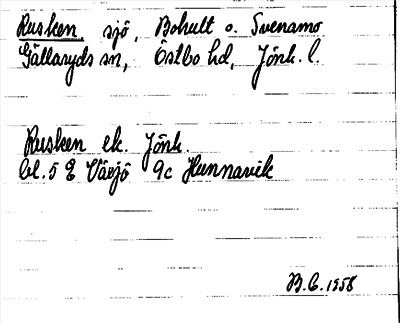 Rusken, sjö, Bohult o. Svenamo
Gällaryds sn, Östbo hd, Jönk. l.
Rusken ek. Jönk.
bl. 5 E Växjö 9c Hunnavik
B.C. 1958